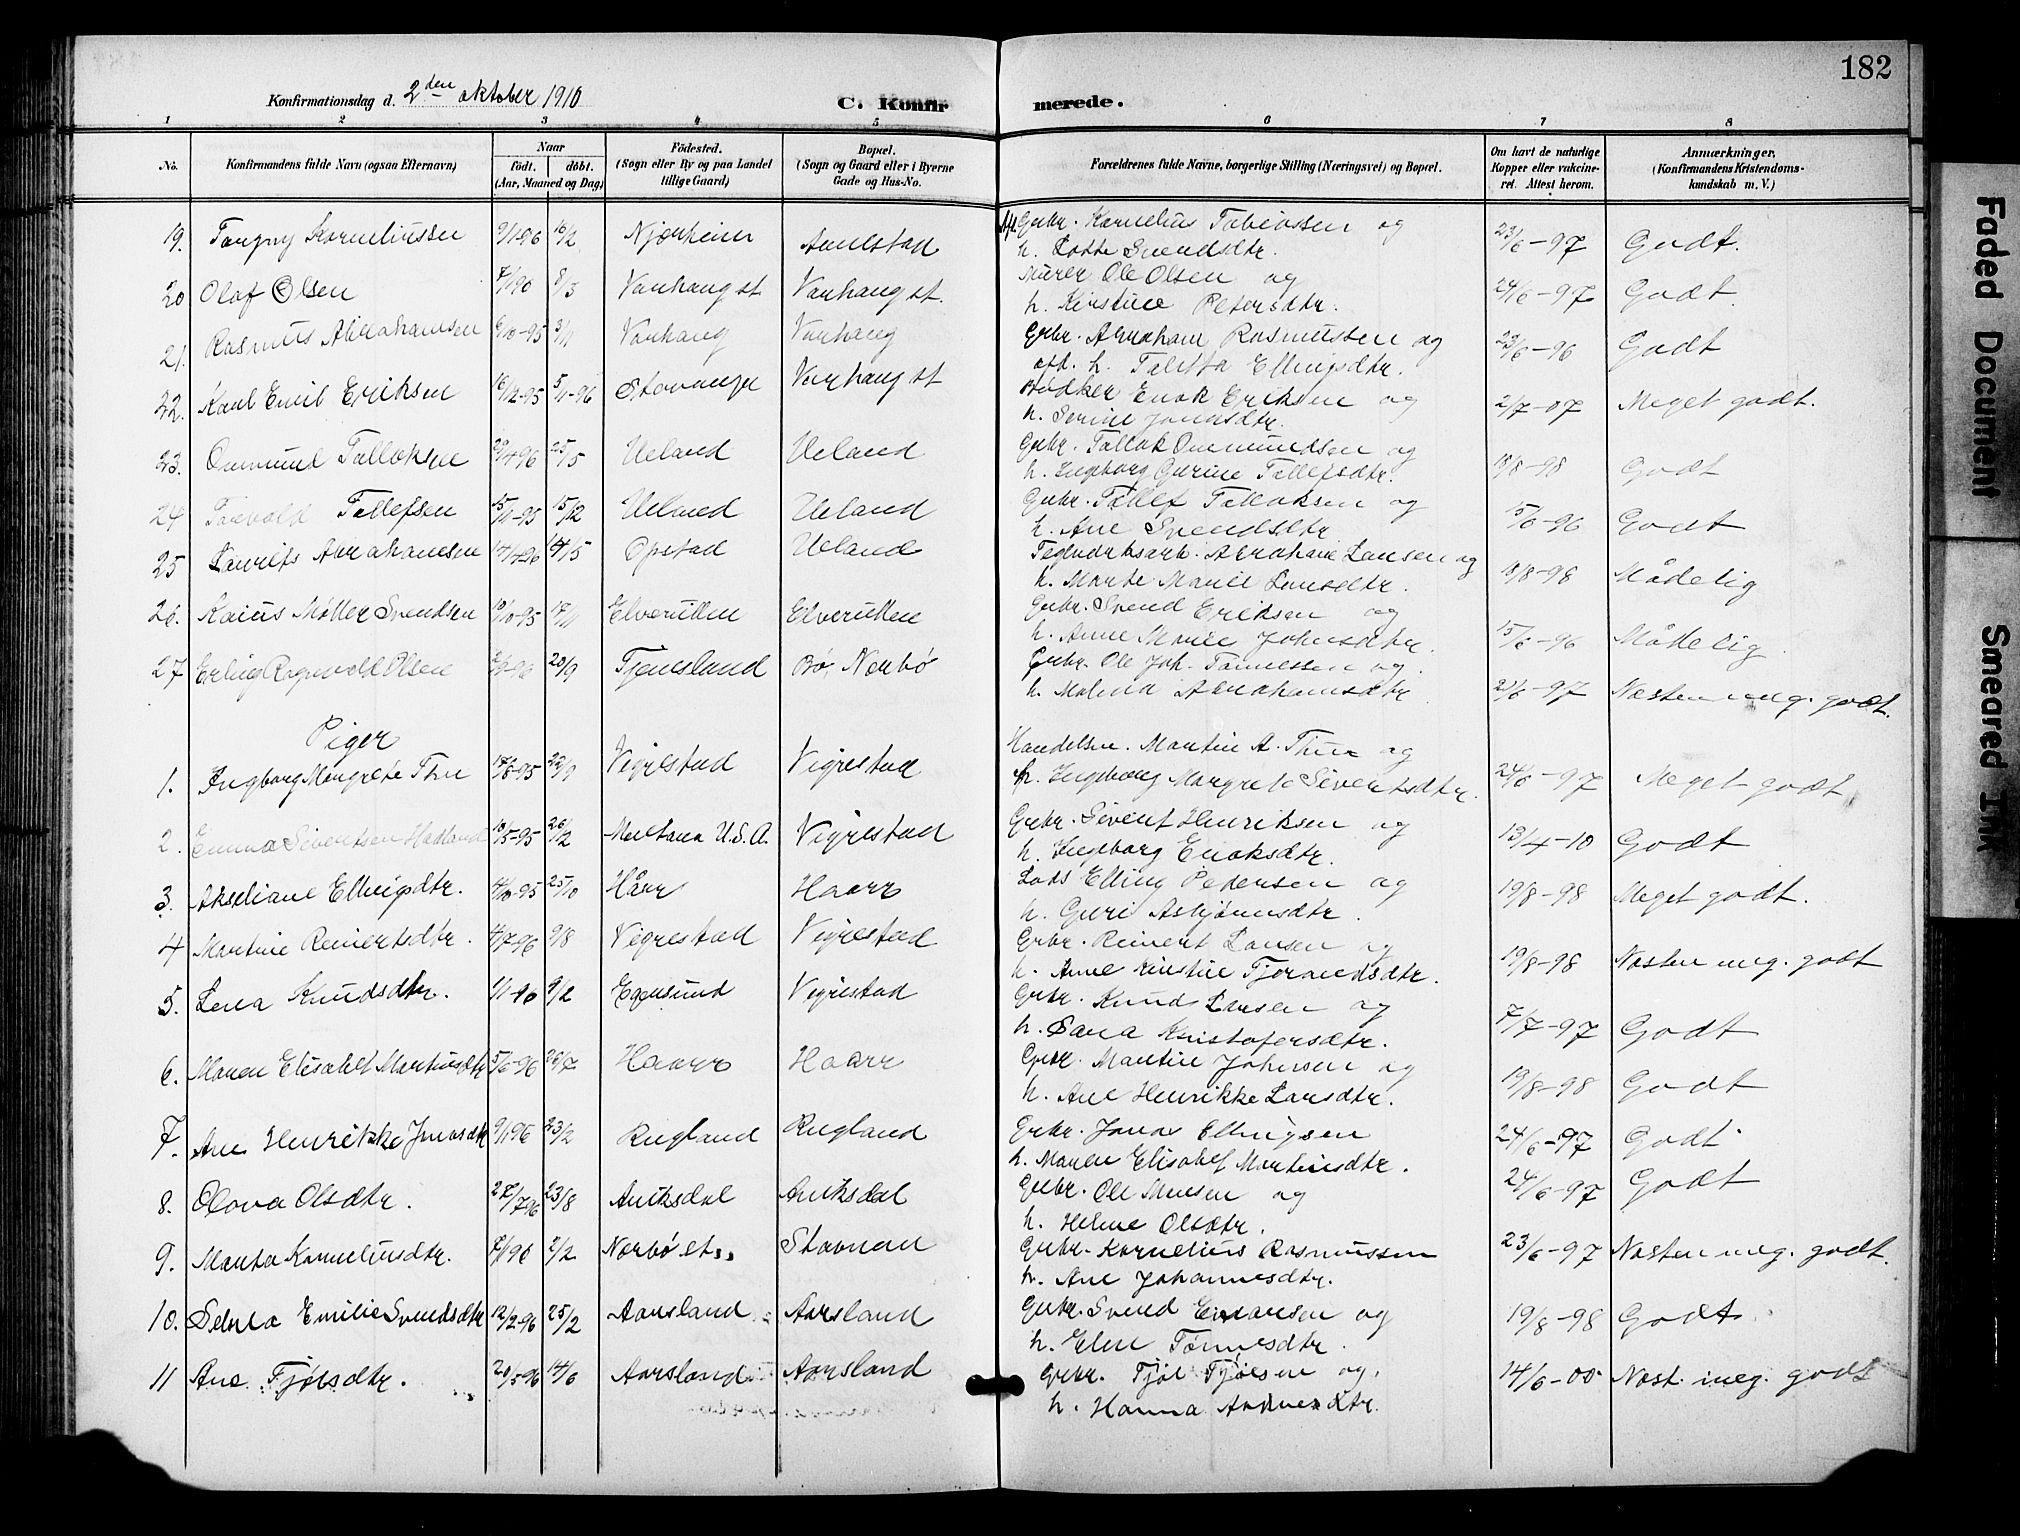 182
Konfirmationsdag d. 2den oktober 1910
C. Konfirmerede.
1 2 3 4 5 6 7 8
No. Konfirmandens fulde Navn (ogsaa Efternavn) Naar födt. döbt. (Aar, Maaned og Dag) Födested. (Sogn eller By og paa Landet tillige Gaard) Bopæl. (Sogn og Gaard eller i Byerne Gade og Hus-No. Forældrenes fulde Navne, borgerlige Stilling (Næringsvei) og Bopæl. Om havt de naturlige Kopper eller vakcineret. Attest herom. Anmærkninger. (Konfirmandens Kristendomskundskab m. V.)
19. Torgny Korneliussen 9/1-96 16/2 Njærheim Aanestad Grbr. Kornelius Tobiassen og
h. Lotte Svendsdtr. 23/6-97 Godt.
20 Olaf Olsen 7/1 96 8/3 Varhaug st Varhaug st. Murer Ole Olsen og
h. Kirstine Petersdtr. 24/6-97 Godt
21. Rasmus Abrahamsen 6/10-95 3/11 Varhaug Varhaug Grbr. Abraham Rasmussen og
afd. h. Talitta Ellingsdtr. 23/6-96 Godt
22. Karl Emil Eriksen 16/12-95 5/1-96 Stavanger Varhaug st Bødker Enok Eriksen og
h. Serine Jonasdtr. 2/7-07 Meget godt.
23. Ommund Tollaksen 29/4 96 25/5 Ueland Ueland Grbr. Tollak Ommundsen og
h. Ingeborg Gurine Tollefsdtr. 18/8-98 Godt
24 Torvald Tollefsen 15/11-95 15/12 Ueland Ueland Grbr. Tollef Tollaksen og
h. Ane Svendsdtr 15/6-96 Godt
25 Laurits Abrahamsen 14/4-96 14/5 Opstad Ueland Teglværksarb. Abraham Larsen og
h. Marte Marie Larsdtr. 18/8-98 Mådelig
26. Kaius Møller Svendsen 10/10-95 17/11 Elverutten Elverutten Grbr. Svend Eriksen og
h. Anne Marie Johnsdtr. 15/6-96 Mådelig
27 Erling Ragnvald Olsen 20/9 Tjensland Bø, Nærbø Grbr. Ole Joh. Tønnessen og
h. Malena Abrahamsdtr 21/6-97 Næsten meg. godt.
Piger
1. Ingborg Margrete Thu 17/8-95 22/9 Vigrestad Vigrestad Handelsm. Martin A. Thu og
h. Ingeborg Margrete Sivertsdtr. 24/6-97 Meget godt
2. Emma Sivertsen Hadland 10/5-95 26/12 Montana U.S.A. Vigrestad Grbr. Sivert Henriksen og
h. Ingeborg Enoksdtr. 13/4-10 Godt
3. Akseliane Ellingsdtr. 4/10-95 25/10 Hårr Haarr Lods Elling Pedersen og
h. Guri Asbjørnsdtr. 19/8-98 Meget godt.
4 Martine Reinertsdtr. 4/7-96 9/8 Vigrestad Vigrestad Grbr. Reinert Larsen og
h. Anne Kirstine Tjørandsdtr. 19/8-98 Næsten meg. godt
5. Lena Knudsdtr. 1/1-96 9/2 Egersund Vigrestad Grbr. Knud Larsen og
h. Sara Kristofersdtr. 7/7-97 Godt
6. Maren Elisabet Martinsdtr 5/6-96 26/7 Haarr Haarr Grbr. Martin Johnsen og
h. Ane Henrikke Larsdtr. 19/8-98 Godt
7. Ane Henrikke Jonasdtr 9/1 96 23/2 Rugland Rugland Grbr. Jonas Ellingsen
h. Maren Elisabet Martinsdtr. 24/6-97 Godt
8. Olova Olsdtr. 27/7 96 23/8 Auksdal Auksdal Grbr. Ole Monsen og
h. Helene Olsdtr. 24/6-97 Godt
9. Marta Kornelinsdtr. 7/1 96 2/2 Nærbø st. Stavnan Grbr. Kornelius Rasmussen
h. Ane Johannesdtr. 23/6-97 Næsten meg. godt.
10. Selma Emilie Svendsdtr 12/2-96 25/2 Aarsland Aarsland Grbr. Svend Einarsen og
h. Elen Tønnesdtr. 19/8-98 Godt
11 Ane Tjølsdtr. 20/5-96 14/6 Aarsland Aarsland Grbr. Tjøl Tjølsen og
h. Hanna Andreasdtr. 14/6-00 Næst. meg. godt
Faded Document
Smeared Ink